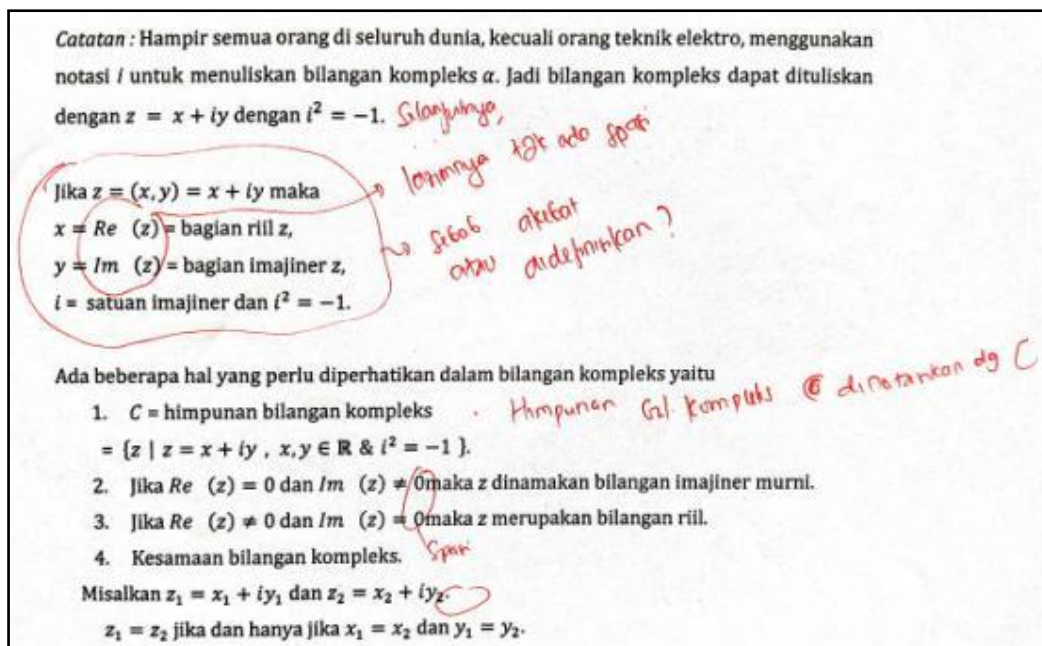 Catatan : Hampir semua orang di seluruh dunia, kecuali orang teknik elektro, menggunakan
notasi i untuk menuliskan bilangan kompleks α. Jadi bilangan kompleks dapat dituliskan
dengan z = x + iy dengan i² = −1. Slanjutnya,
lazimnya tdk ada spasi
Jika z = (x, y) = x + iy maka
x = Re (z) = bagian riil z,
sebab akibat
atau didefinisikan ?
y = Im (z) = bagian imajiner z,
i = satuan imajiner dan i² = −1.
Ada beberapa hal yang perlu diperhatikan dalam bilangan kompleks yaitu
1. C = himpunan bilangan kompleks
Himpunan bil. kompleks dinotasikan dg C
= {z | z = x + iy , x, y ∈ ℝ & i² = −1 }.
2. Jika Re (z) = 0 dan Im (z) ≠ 0maka z dinamakan bilangan imajiner murni.
3. Jika Re (z) ≠ 0 dan Im (z) = 0maka z merupakan bilangan riil.
spasi
4. Kesamaan bilangan kompleks.
Misalkan z₁ = x₁ + iy₁ dan z₂ = x₂ + iy₂.
z₁ = z₂ jika dan hanya jika x₁ = x₂ dan y₁ = y₂.